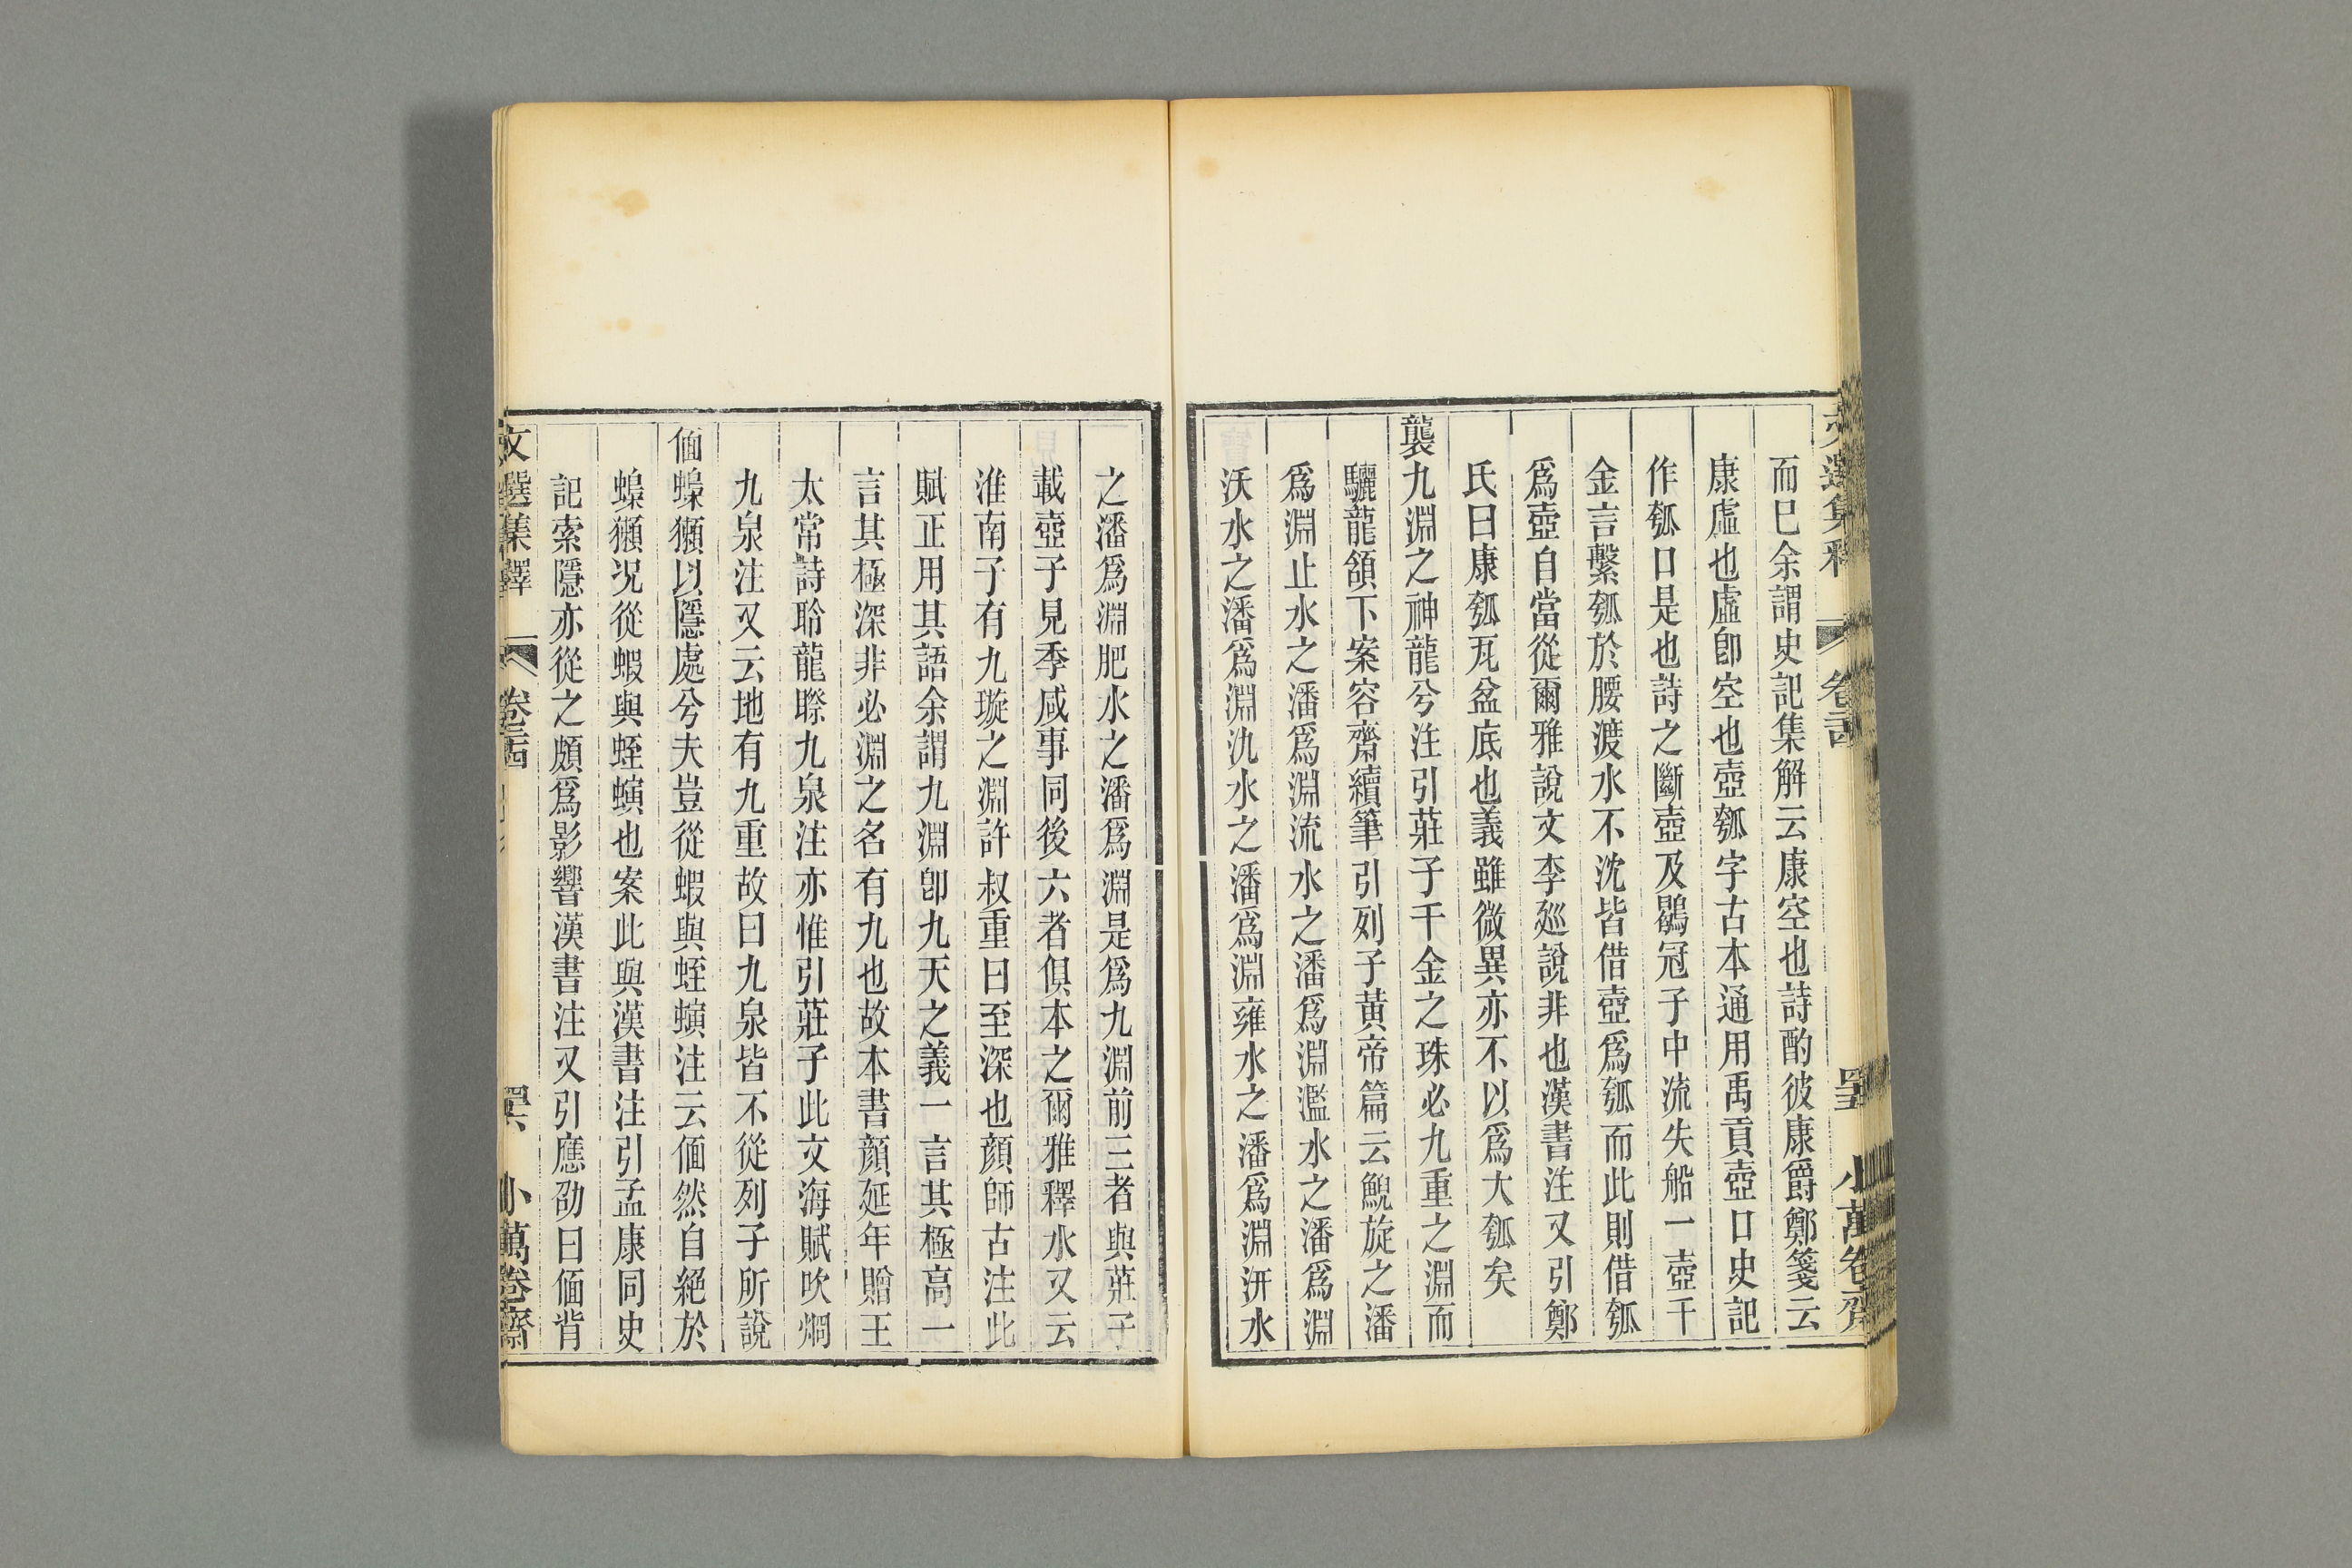 文選集釋 卷 小萬卷齋
而巳余謂史記集解云康空也詩酌彼康爵鄭箋云
康虛也虛卽空也壺瓠字古本通用禹貢壺口史記
作瓠口是也詩之斷壺及鶡冠子中流失船一壺千
金言繫瓠於腰渡水不沈皆借壺爲瓠而此則借瓠
爲壺自當從爾雅說文李廵說非也漢書注又引鄭
氏曰康瓠瓦盆底也義雖微異亦不以爲大瓠矣
襲九淵之神龍兮注引莊子千金之珠必九重之淵而
驪龍頷下案容齋續筆引列子黃帝篇云鯢旋之潘
爲淵止水之潘爲淵流水之潘爲淵濫水之潘爲淵
沃水之潘爲淵氿水之潘爲淵雍水之潘爲淵汧水
之潘爲淵肥水之潘爲淵是爲九淵前三者與莊子
載壺子見季咸事同後六者俱本之爾雅釋水又云
淮南子有九璇之淵許叔重曰至深也顏師古注此
賦正用其語余謂九淵卽九天之義一言其極高一
言其極深非必淵之名有九也故本書顏延年贈王
太常詩聆龍䁽九泉注亦惟引莊子此文海賦吹烱
九泉注又云地有九重故曰九泉皆不從列子所說
偭蟂獺以隱處兮夫豈從蝦與蛭螾注云偭然自絕於
蟂獺况從蝦與蛭螾也案此與漢書注引孟康同史
記索隱亦從之頗爲影響漢書注又引應劭曰偭背
文選集釋 卷二十四 小萬卷齋